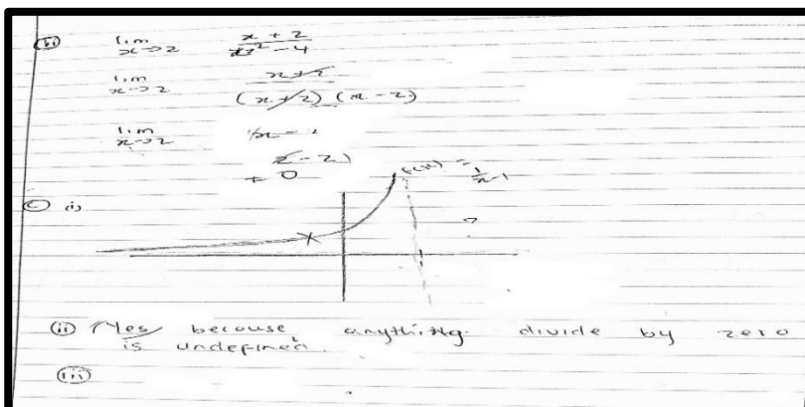 lim x→2 x + 2 / x² - 4
lim x→2 x+2 / (x+2) (x-2)
lim x→2
-2)
0
f(x) = 1/x-1
(c) i)
(ii) Yes because anything divide by zero
is undefined.
(iii)